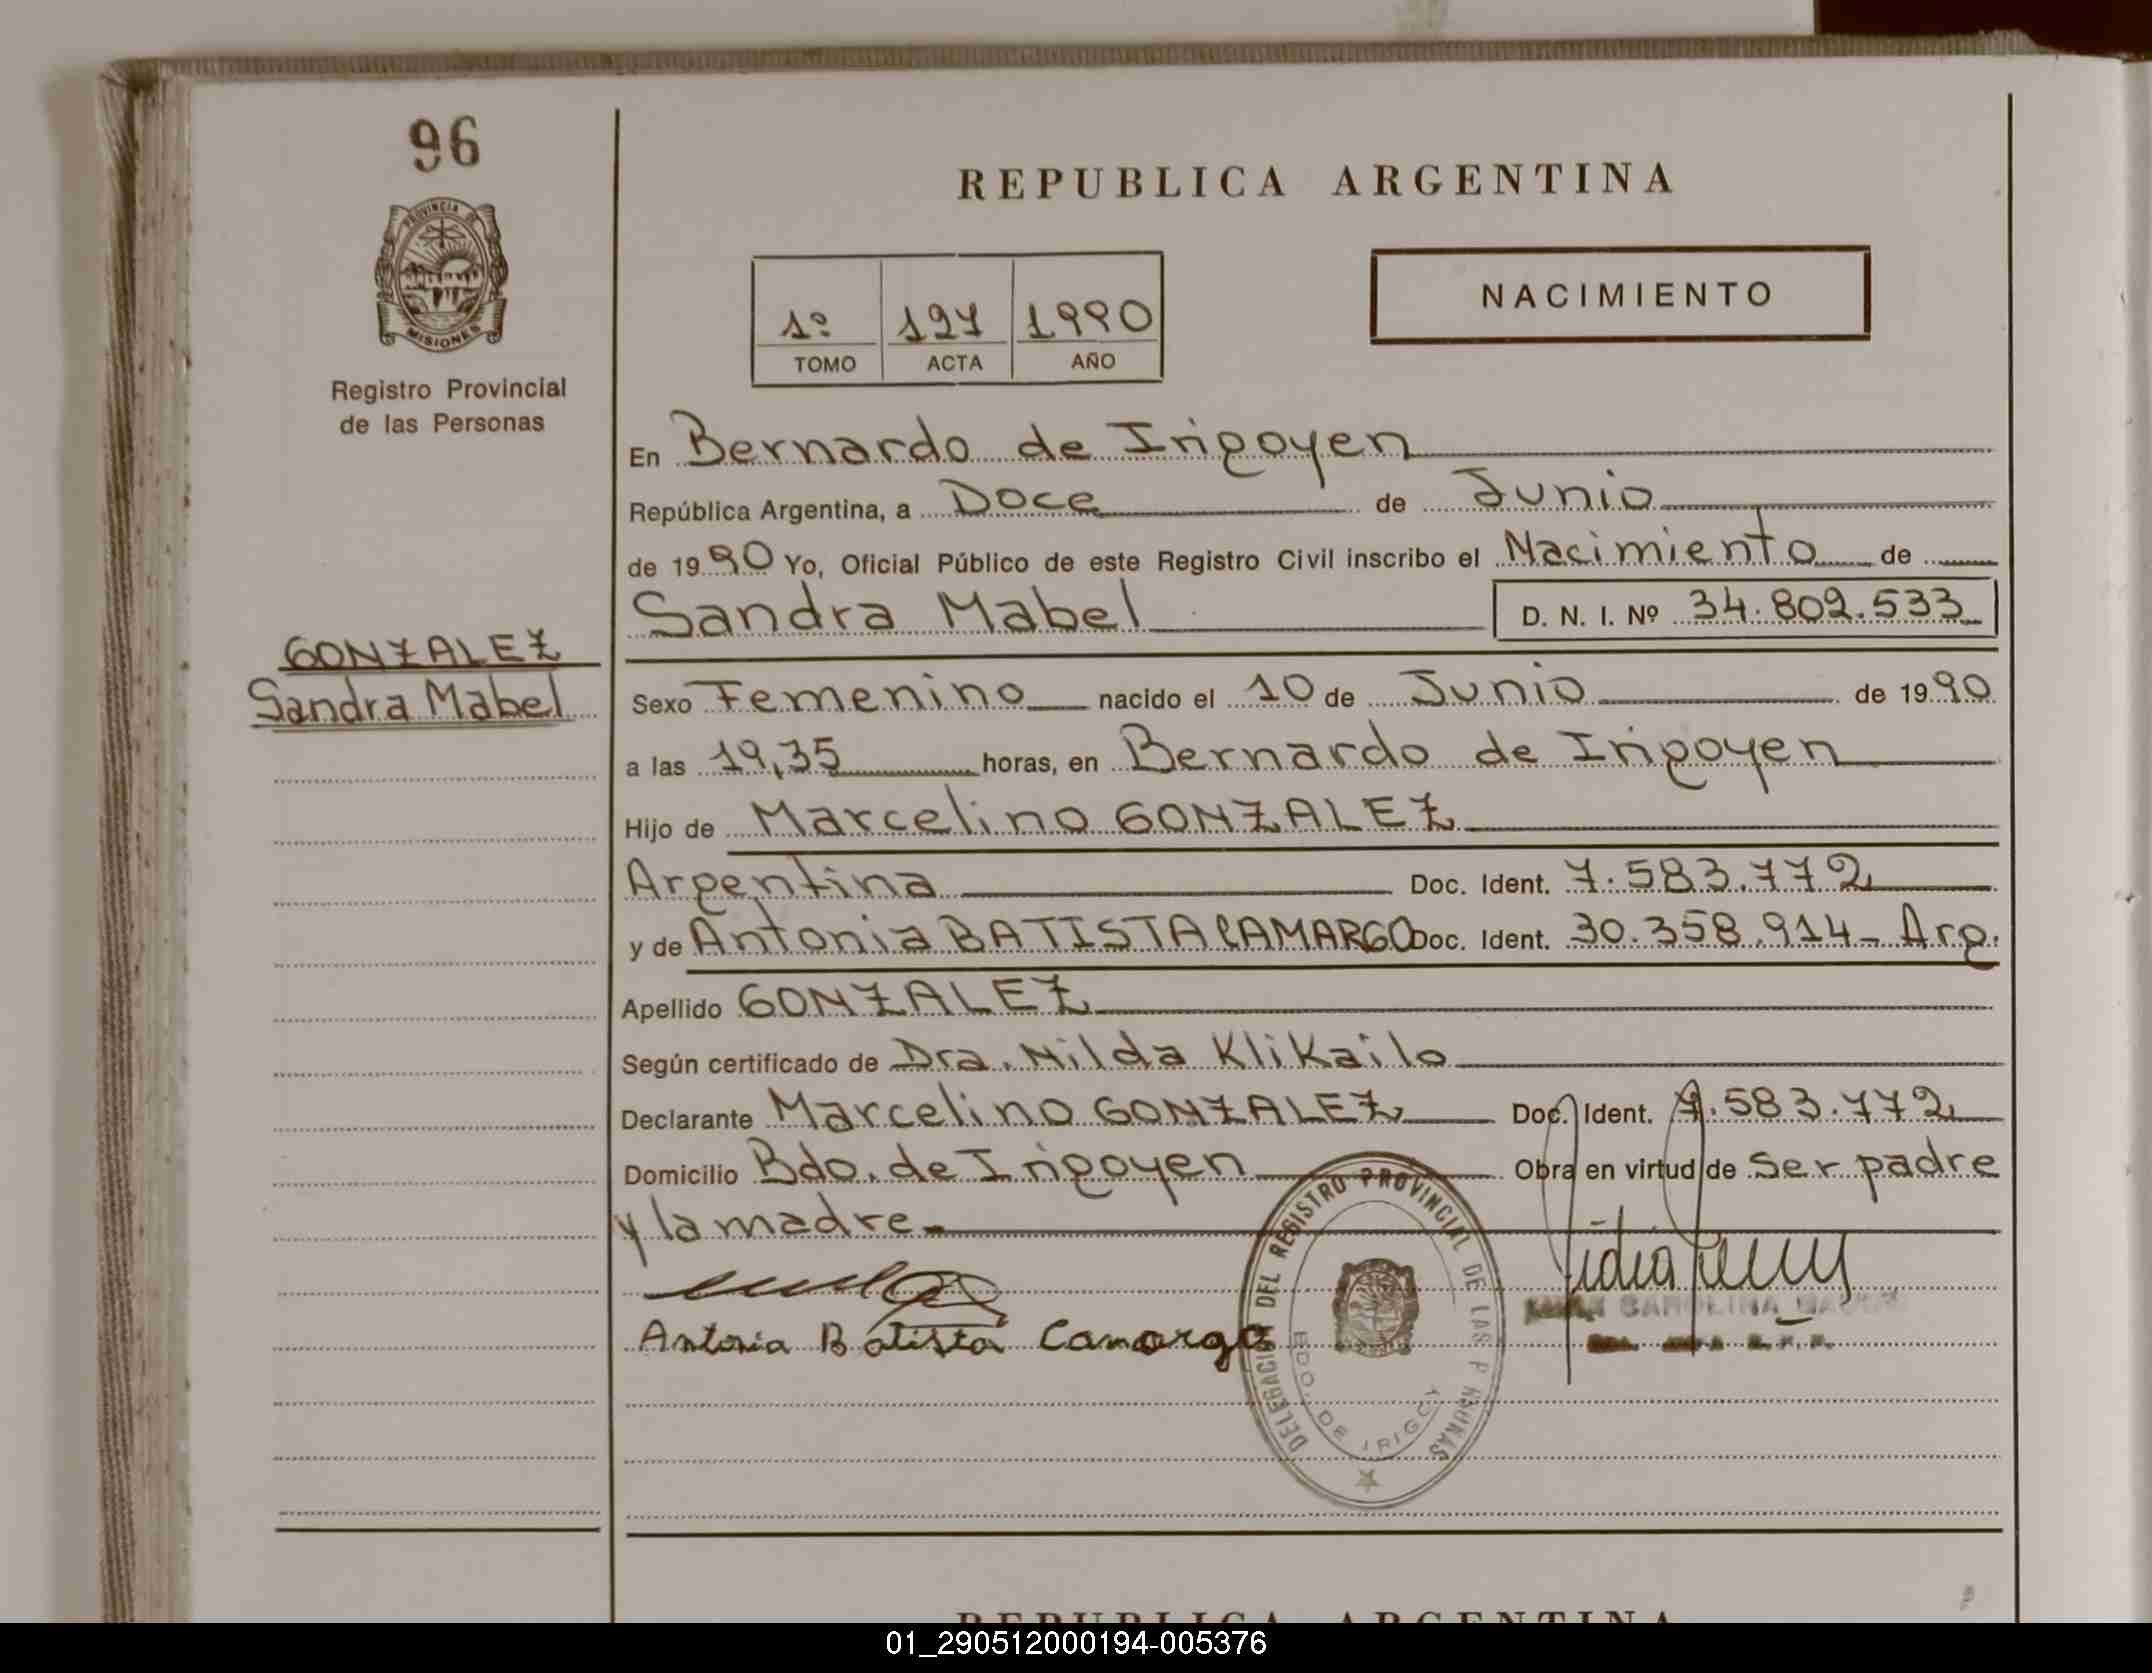 96
PROVINCIA DE
MISIONES
Registro Provincial
de las Personas
GONZALEZ
Sandra Mabel
REPUBLICA ARGENTINA
1º 127 1990
TOMO ACTA AÑO
NACIMIENTO
En Bernardo de Irigoyen
República Argentina, a Doce de Junio
de 1990 Yo, Oficial Público de este Registro Civil inscribo el Nacimiento de
Sandra Mabel D. N. I. Nº 34.802.533
Sexo Femenino nacido el 10 de Junio de 1990
a las 19,35 horas, en Bernardo de Irigoyen
Hijo de Marcelino GONZALEZ
Argentina Doc. Ident. 7.583.772
y de Antonia BATISTA CAMARGO Doc. Ident. 30.358.914- Arg.
Apellido GONZALEZ
Según certificado de Dra. Nilda KliKailo
Declarante Marcelino GONZALEZ Doc. Ident. 7.583.772
Domicilio Bdo. de Irigoyen Obra en virtud de ser padre
y la madre.-
Antonia Batista Camargo
DELEGACION DEL REGISTRO PROVINCIAL DE LAS P
BDO. DE IRIGOY
CAROLINA
REPUBLICA ARGENTINA
01_290512000194-005376